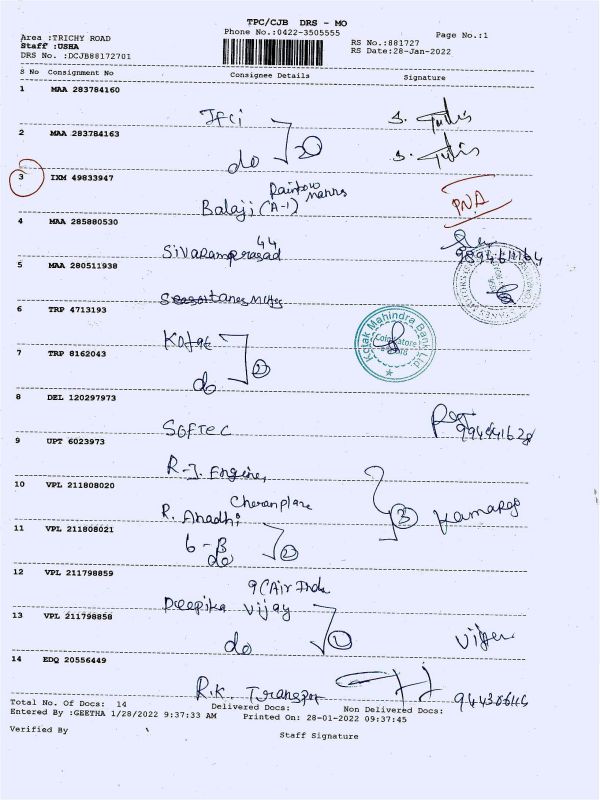 TPC/CJB DRS - MO
Phone No.:0422-3505555
Page No.:1
Area :TRICHY ROAD
Staff :USHA
DRS No. :DCJB88172701
RS No.:881727
RS Date:28-Jan-2022
S No Consignment No Consignee Details Signature
1 MAA 283784160
Ifci
2 MAA 283784163
do
3 IXM 49833947
Rainbow
Balaji (A-1) PNA
4 MAA 285880530
44
Sivaramprasad
5 MAA 280511938
6 TRP 4713193
Kotak
Kotak Mahindra Bank Ltd
Coimbatore
7 TRP 8162043
do 2
8 DEL 120297973
SOFTEC
9 UPT 6023973
R.J. Engine
10 VPL 211808020
R. Anadhi 3
11 VPL 211808021
6-B
do 2
12 VPL 211798859
9(Air Inda
Deepika Vijay
13 VPL 211798858
do 1
14 EDQ 20556449
R.K. Transpor
Total No. Of Docs: 14 Delivered Docs: Non Delivered Docs:
Entered By :GEETHA 1/28/2022 9:37:33 AM Printed On: 28-01-2022 09:37:45
Verified By
Staff Signature